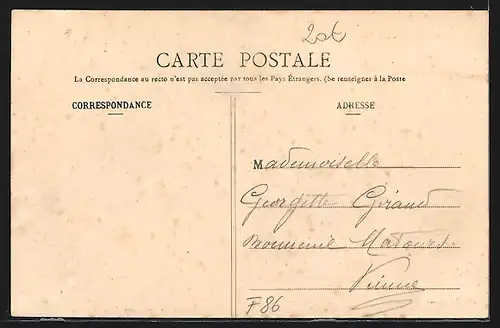 CARTE POSTALE
La Correspondance au recto n'est pas acceptée par tous les Pays Étrangers. (Se renseigner à la Poste
CORRESPONDANCE
ADRESSE
Mademoiselle
Georgette Giraud
Bonneuil Matours
Vienne
F86